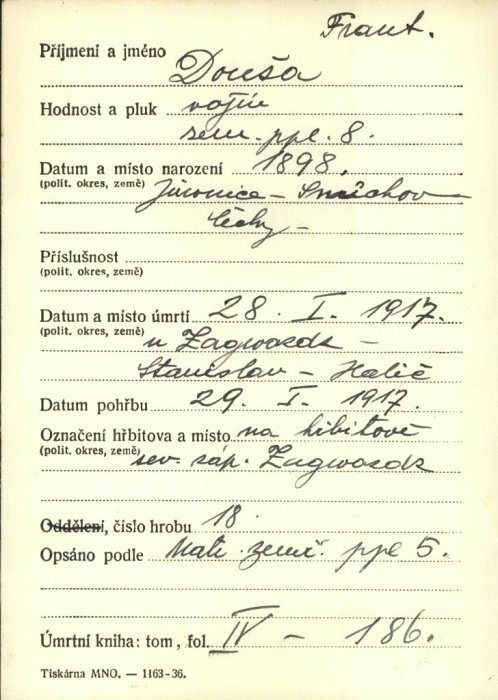 Frant.
Příjmení a jméno Douša
Hodnost a pluk vojín
zem. ppl. 8.
Datum a místo narození 1898.
(polit. okres, země) Jinonice – Smíchov
Čechy –
Příslušnost
(polit. okres, země)
Datum a místo úmrtí 28. I. 1917.
(polit. okres, země) u Zagwozdz –
Stanislav – Halič
Datum pohřbu 29. I. 1917.
Označení hřbitova a místo na hřbitově
(polit. okres, země) sev. záp. Zagwozdz
Oddělení, číslo hrobu 18
Opsáno podle Matr. zemř. ppl 5.
Úmrtní kniha: tom, fol. IV – 186.
Tiskárna MNO. — 1163-36.